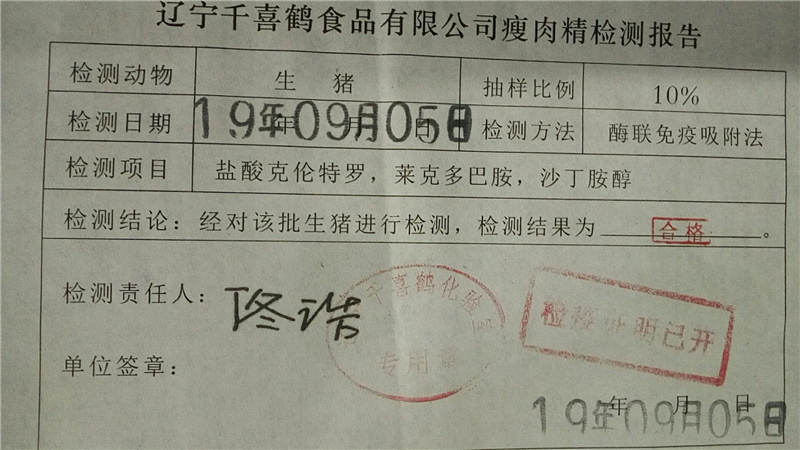 辽宁千喜鹤食品有限公司瘦肉精检测报告
检测动物 生 猪 抽样比例 10%
检测日期 19年09月05日 检测方法 酶联免疫吸附法
检测项目 盐酸克伦特罗，莱克多巴胺，沙丁胺醇
检测结论：经对该批生猪进行检测，检测结果为 合格 。
检测责任人：佟浩
千喜鹤化验室
专用章
检疫证明已开
单位签章：
19年09月05日